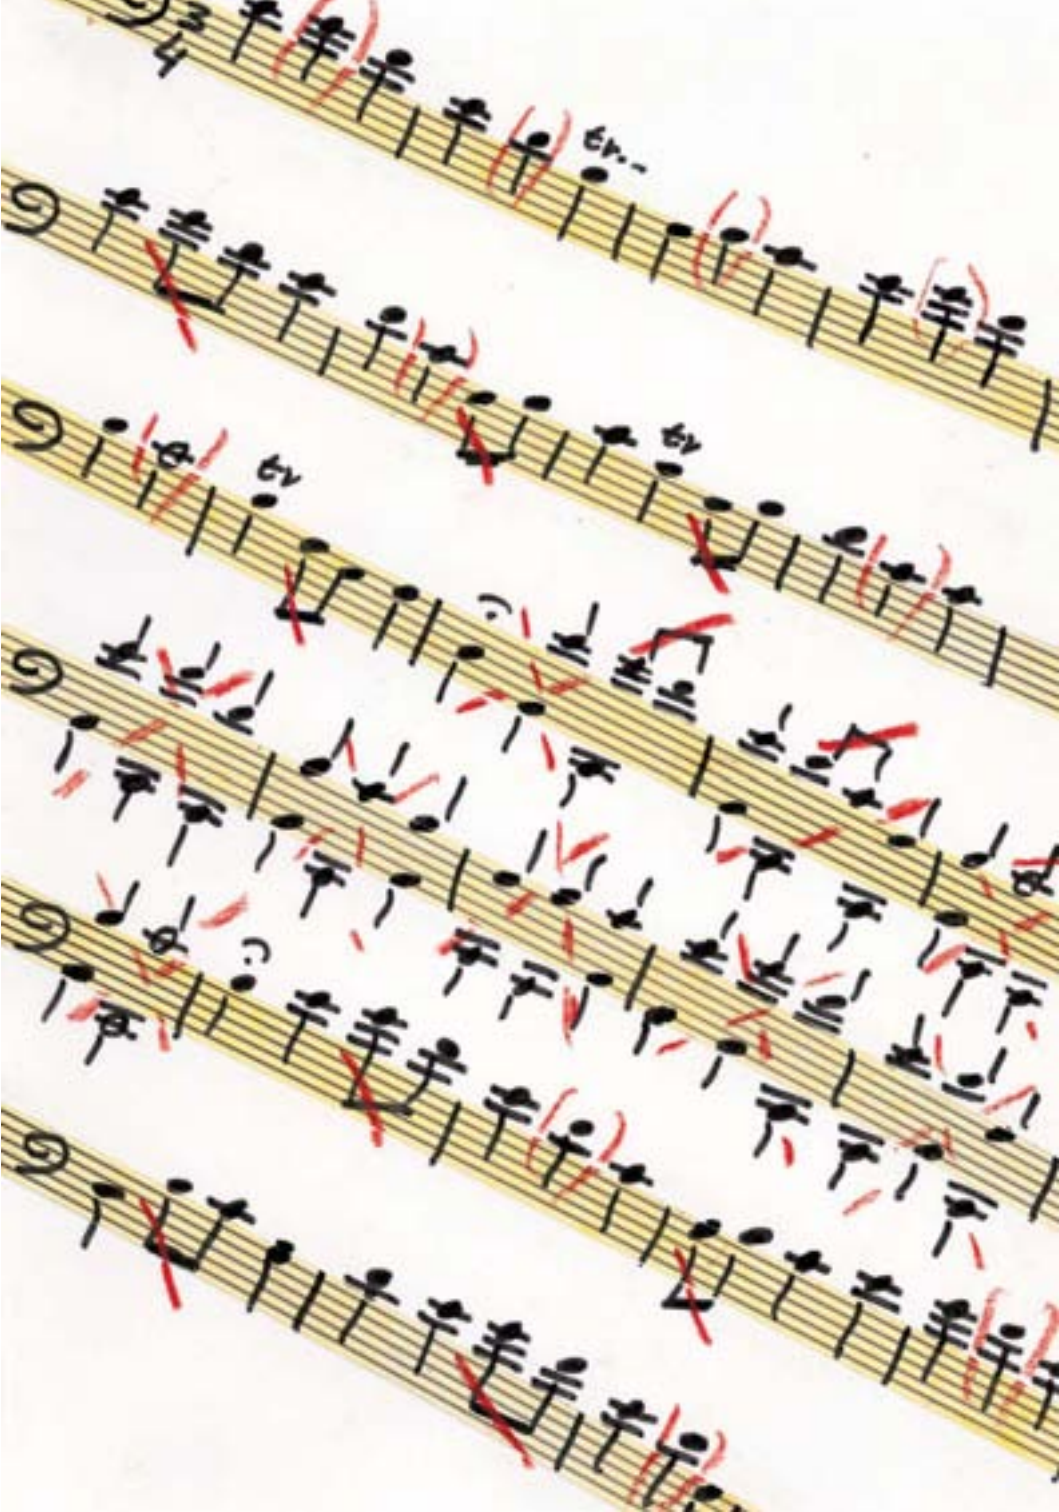 3
4
tr..
tr
tr